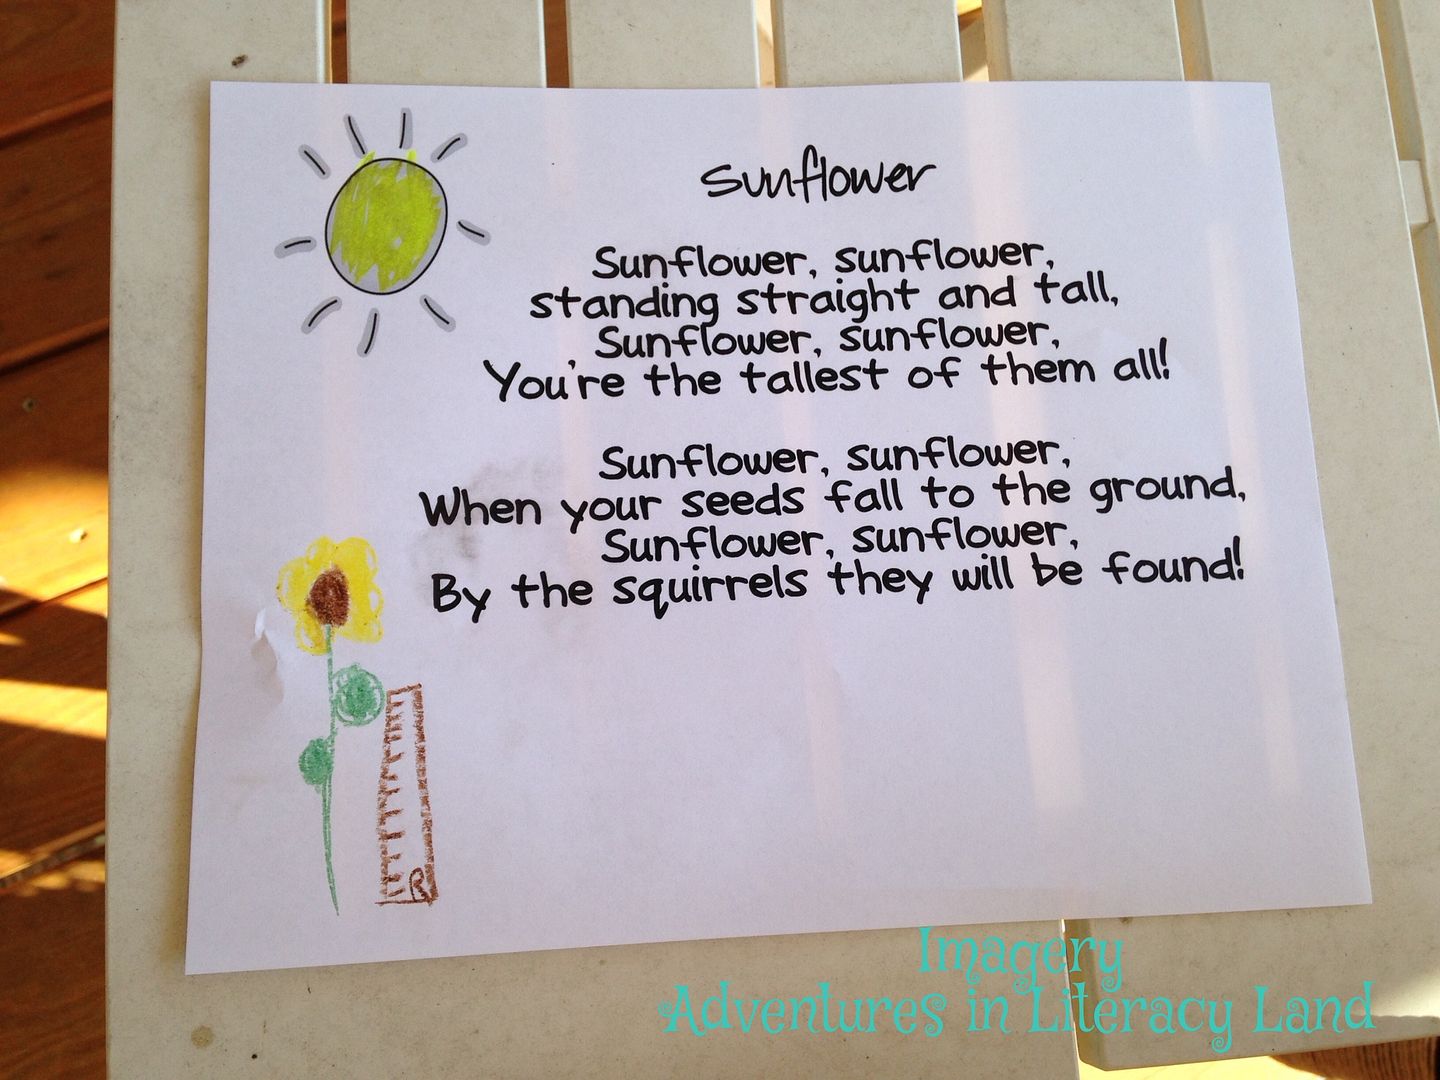 Sunflower
Sunflower, sunflower,
standing straight and tall,
Sunflower, sunflower,
You're the tallest of them all!
Sunflower, sunflower,
When your seeds fall to the ground,
Sunflower, sunflower,
By the squirrels they will be found!
R
Imagery
Adventures in Literacy Land